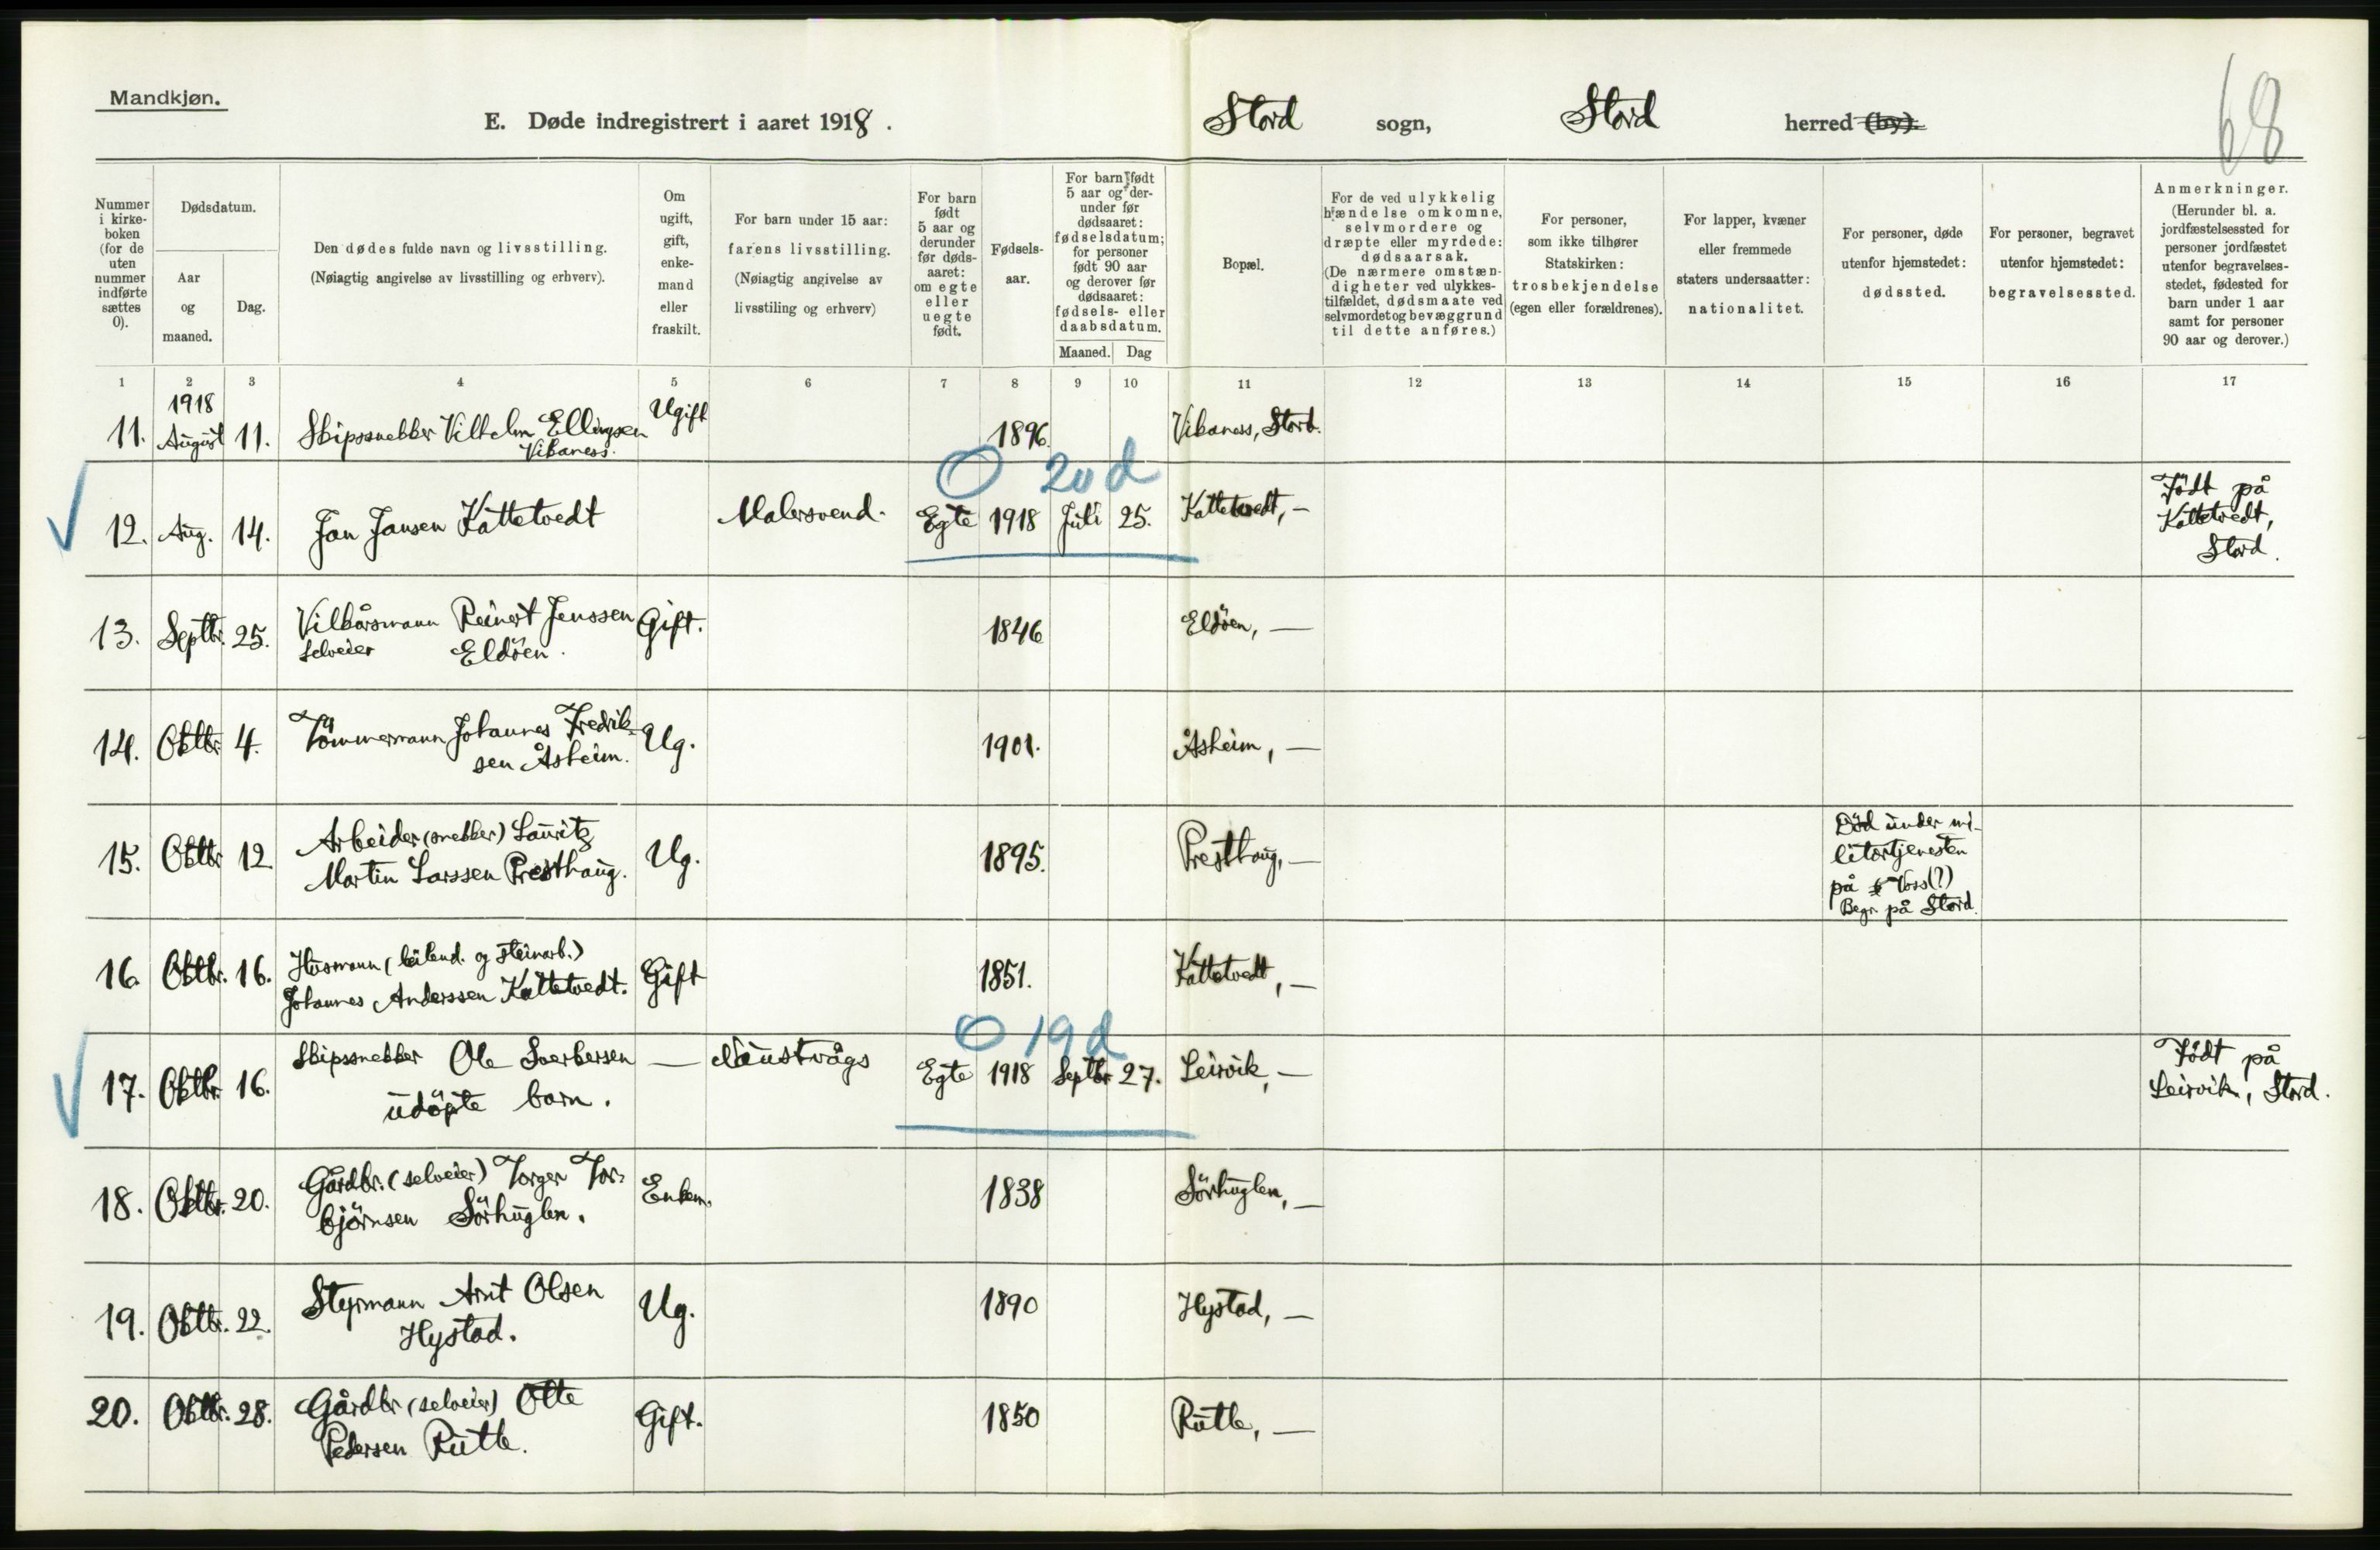 Mandkjøn.
E. Døde indregistrert i aaret 1918.
Stord sogn, Stord herred (by).
68
Nummer i kirke-boken (for de uten nummer indførte sættes 0).
Dødsdatum.
Aar og maaned.
Dag.
Den dødes fulde navn og livsstilling.
(Nøiagtig angivelse av livsstilling og erhverv).
Om ugift, gift, enke-mand eller fraskilt.
For barn under 15 aar:
farens livsstilling.
(Nøiagtig angivelse av
livsstiling og erhverv)
For barn født 5 aar og derunder før døds-aaret: om egte eller uegte født.
Fødsels-aar.
For barn født 5 aar og der-under før dødsaaret: fødselsdatum; for personer født 90 aar og derover før dødsaaret: fødsels- eller daabsdatum.
Maaned. Dag
Bopæl.
For de ved ulykkelig hændelse omkomne, selvmordere og dræpte eller myrdede: dødsaarsak.
(De nærmere omstæn-digheter ved ulykkes-tilfældet, dødsmaate ved selvmordet og bevæggrund til dette anføres.)
For personer, som ikke tilhører Statskirken: trosbekjendelse (egen eller forældrenes).
For lapper, kvæner eller fremmede staters undersaatter: nationalitet.
For personer, døde utenfor hjemstedet: dødssted.
For personer, begravet utenfor hjemstedet: begravelsessted.
Anmerkninger.
(Herunder bl. a. jordfæstelsessted for personer jordfæstet utenfor begravelses-stedet, fødested for barn under 1 aar samt for personer 90 aar og derover.)
1 2 3 4 5 6 7 8 9 10 11 12 13 14 15 16 17
1918
11. August 11. Skipssnekker Vilhelm Ellingsen Ugift 1896. Vikaness, Stord.
Vikaness.
O 20 d
12. Aug. 14. Jan Jansen Kattetvedt Malersvend. Egte 1918 Juli 25. Kattetvedt, — Født på
Kattetvedt,
Stord.
13. Septbr. 25. Vilkårsmann Reinert Jenssen Gift. 1846 Eldöen, —
selveier Eldöen.
14. Oktbr. 4. Tömmermann Johannes Fredrik- Ug. 1901. Åsheim, —
sen Åsheim.
15. Oktbr 12 Arbeider (snekker) Lauritz Ug. 1895. Presthaug, — Död under mi-
Martin Larssen Presthaug. litærtjenesten
på Voss(?)
Begr. på Stord.
16. Oktbr. 16. Husmann (leilend. og steinarb.) Gift 1851. Kattetvedt, —
Johannes Anderssen Kattetvedt.
O 19 d
17. Oktbr. 16. Skipssnekker Ole Sverkersen — Naustvågs Egte 1918 Septbr 27. Leirvik, — Født på
udöpte barn. Leirvik, Stord.
18. Oktbr. 20. Gårdbr. (selveier) Torger Tor- Enkem. 1838 Sörhuglen, —
björnsen Sörhuglen.
19. Oktbr. 22. Styrmann Arnt Olsen Ug. 1890 Hystad, —
Hystad.
20. Oktbr. 28. Gårdbr (selveier) Otte Gift. 1850 Rutle, —
Pedersen Rutle.